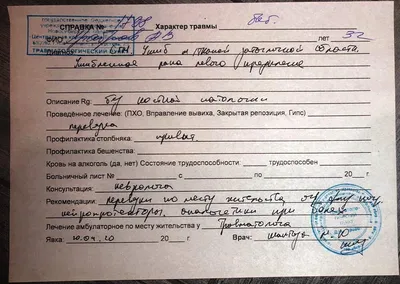 СПРАВКА № 1709 Характер травмы быт.
ФИО лет 32
ТРАВМАТОЛОГИЧЕСКИЙ
Диагноз Ушиб м. тканей затылочной области.
Ушибленная рана левого предплечья
Описание Rg: без костной патологии
Проведённое лечение: (ПХО, Вправление вывиха, Закрытая репозиция, Гипс)
перевязка
Профилактика столбняка: привит
Профилактика бешенства:
Кровь на алкоголь (да, нет) Состояние трудоспособности: трудоспособен
Больничный лист № с по 20 г.
Консультация: невролога
Рекомендации: перевязки по месту жительства
нейропротекторы, анальгетики при болях
Лечение амбулаторное по месту жительства у Травматолога
Явка: 10.04.20 20 г. Врач: